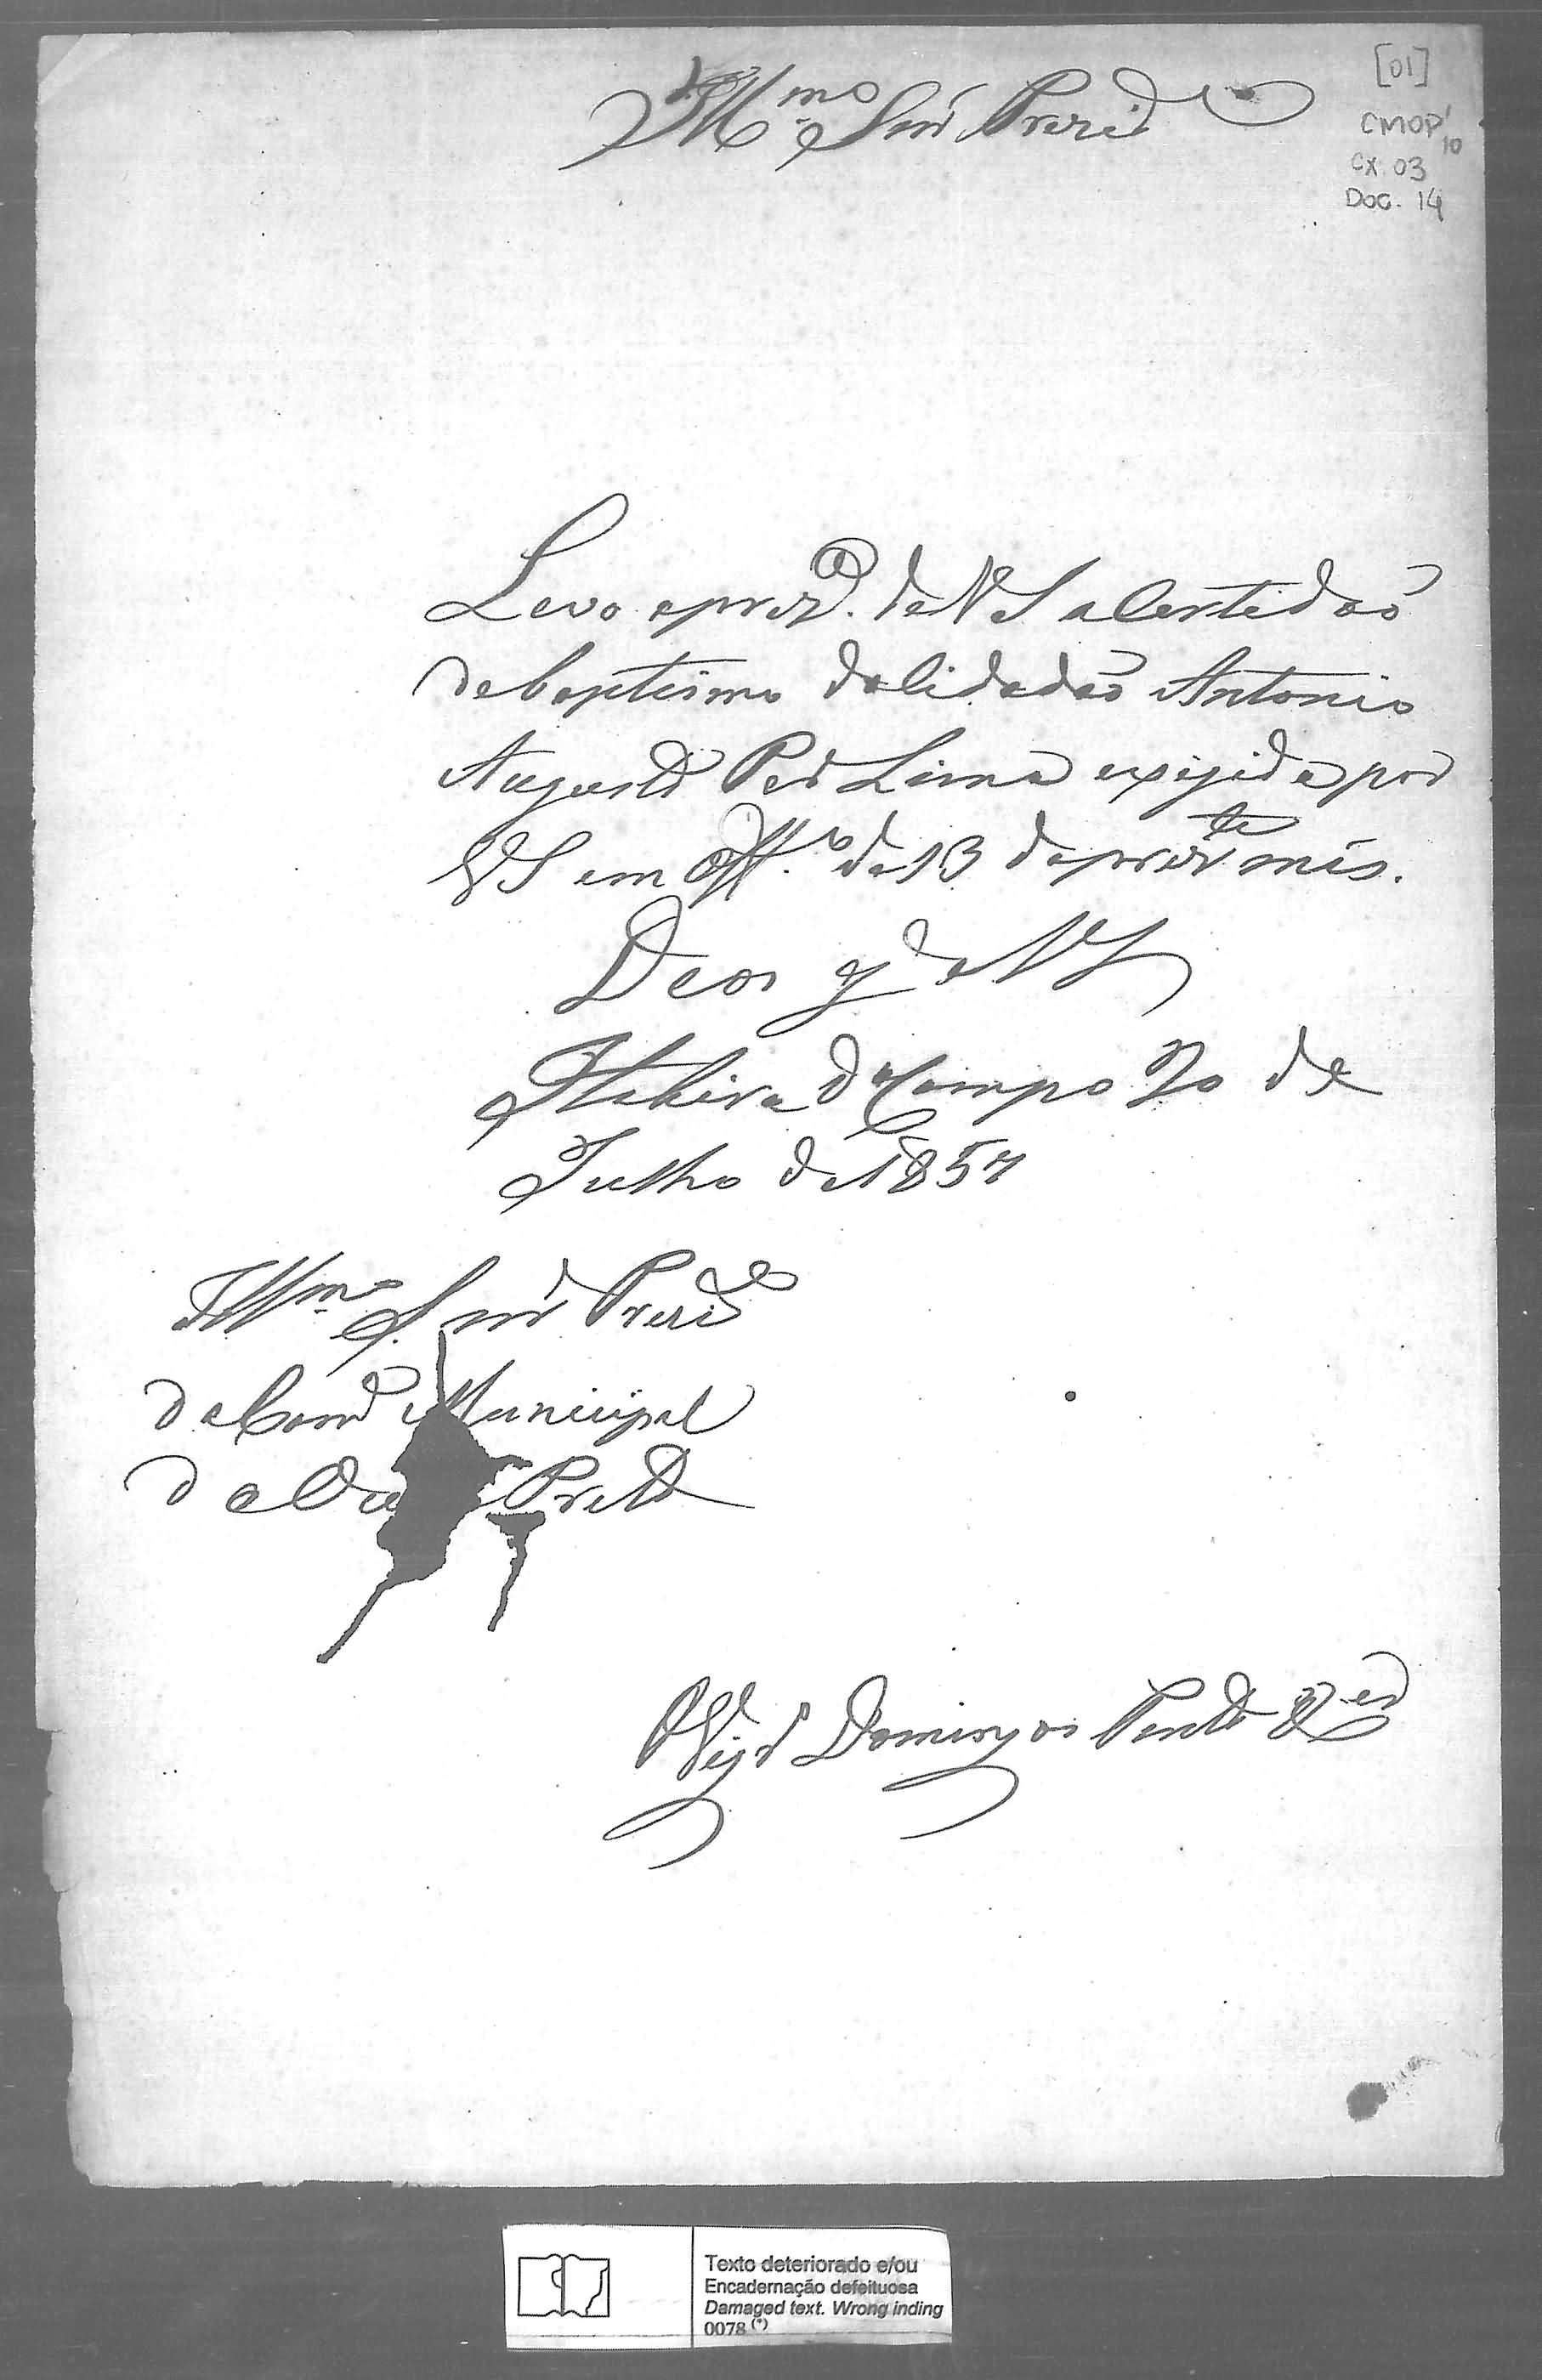 [01]
CMOP 1/10
CX. 03
Doc. 14
Illmo Snr Prezid
Levo a prezça. de VS a Certidaõ
de baptismo do Cidadaõ Antonio
Augusto Per Lima exigida por
VS em Offo. de 13 do prezte mes.
Deos g de VS
Itabira do Campo 20 de
Julho de 1857
Illmo Snr Prezide
da Camra Municipal
do Ou Preto
O Vigr Domingos
Texto deteriorado e/ou
Encadernação defeituosa
Damaged text. Wrong inding
0078 (*)